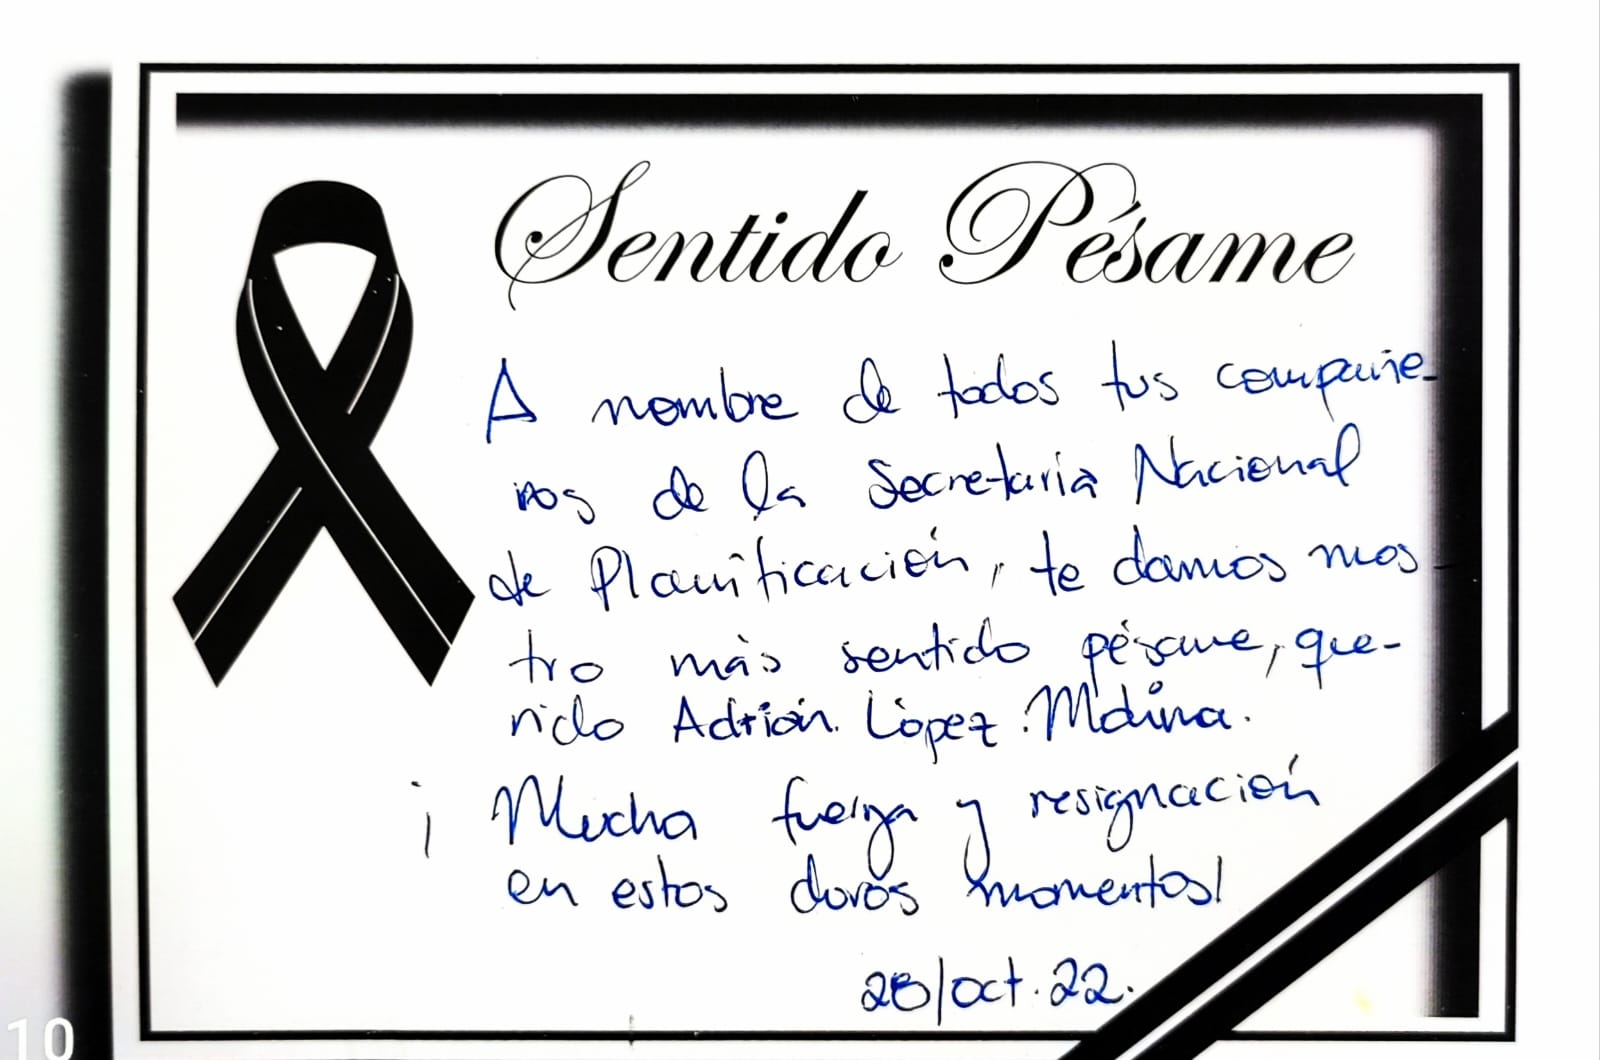 Sentido Pésame
A nombre de todos tus compañe-
ros de la Secretaría Nacional
de Planificación, te damos nues-
tro más sentido pésame, que-
rido Adrián López Molina.
¡Mucha fuerza y resignación
en estos duros momentos!
28/oct.22.
10